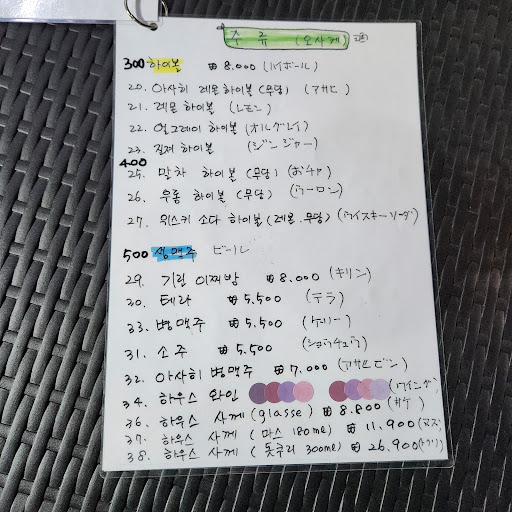 주류 (오사께)
300 하이볼 ₩8.000 (ハイボール)
20. 아사히 레몬 하이볼 (무당) (アサヒ)
21. 레몬 하이볼 (レモン)
22. 얼그레이 하이볼 (オルグレイ)
23. 진저 하이볼 (ジンジャー)
400
25. 말차 하이볼 (무당) (おチャ)
26. 우롱 하이볼 (무당) (ウーロン)
27. 위스키 소다 하이볼 (레몬.무당) (ウイスキーソーダ)
500 생맥주 ビール
29. 기린 이찌방 ₩8.000 (キリン)
30. 테라 ₩5.500 (テラ)
33. 병맥주 ₩5.500 (ケリー)
31. 소주 ₩5.500 (ショウチュウ)
32. 아사히 병맥주 ₩7.000 (アサヒビン)
34. 하우스 와인
36. 하우스 사께 (glasse) ₩8.800 (サケ)
37. 하우스 사께 (마스 180ml) ₩11.900
38. 하우스 사께 (돗쿠리 300ml) ₩26.900